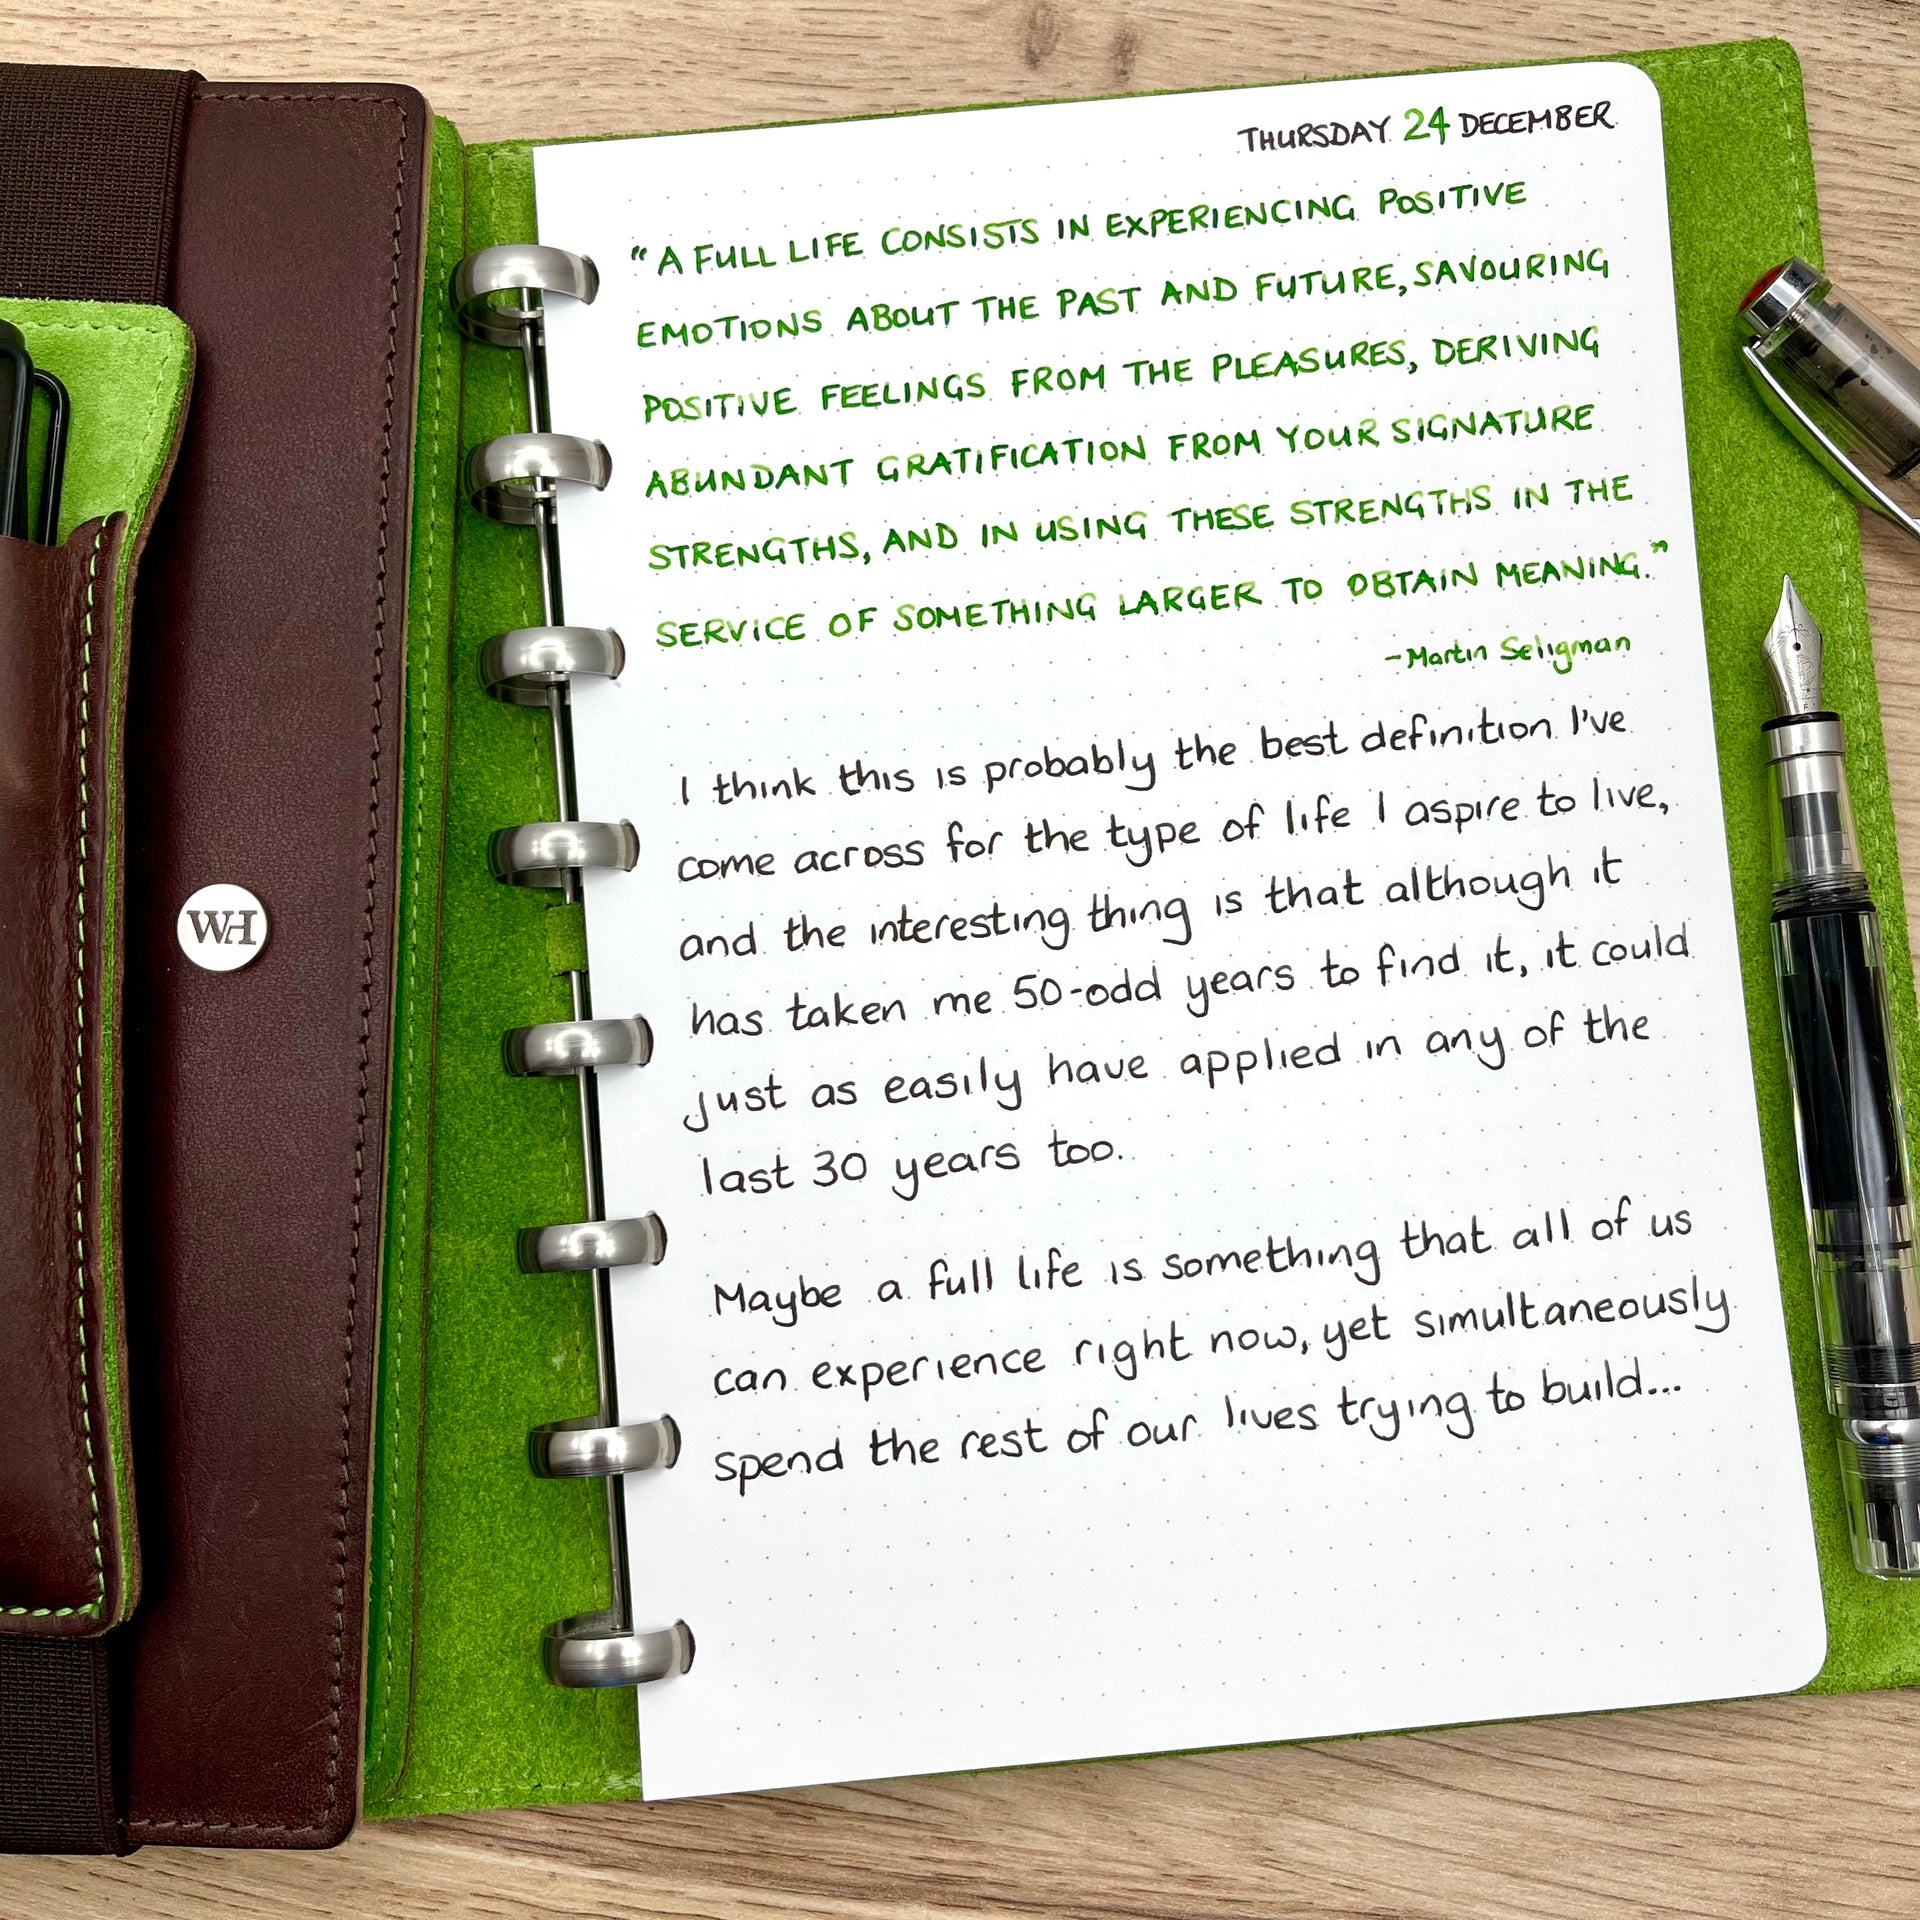 THURSDAY 24 DECEMBER
"A FULL LIFE CONSISTS IN EXPERIENCING POSITIVE
EMOTIONS ABOUT THE PAST AND FUTURE, SAVOURING
POSITIVE FEELINGS FROM THE PLEASURES, DERIVING
ABUNDANT GRATIFICATION FROM YOUR SIGNATURE
STRENGTHS, AND IN USING THESE STRENGTHS IN THE
SERVICE OF SOMETHING LARGER TO OBTAIN MEANING."
- Martin Seligman
I think this is probably the best definition I've
come across for the type of life I aspire to live,
and the interesting thing is that although it
has taken me 50-odd years to find it, it could
just as easily have applied in any of the
last 30 years too.
Maybe a full life is something that all of us
can experience right now, yet simultaneously
spend the rest of our lives trying to build...
WH